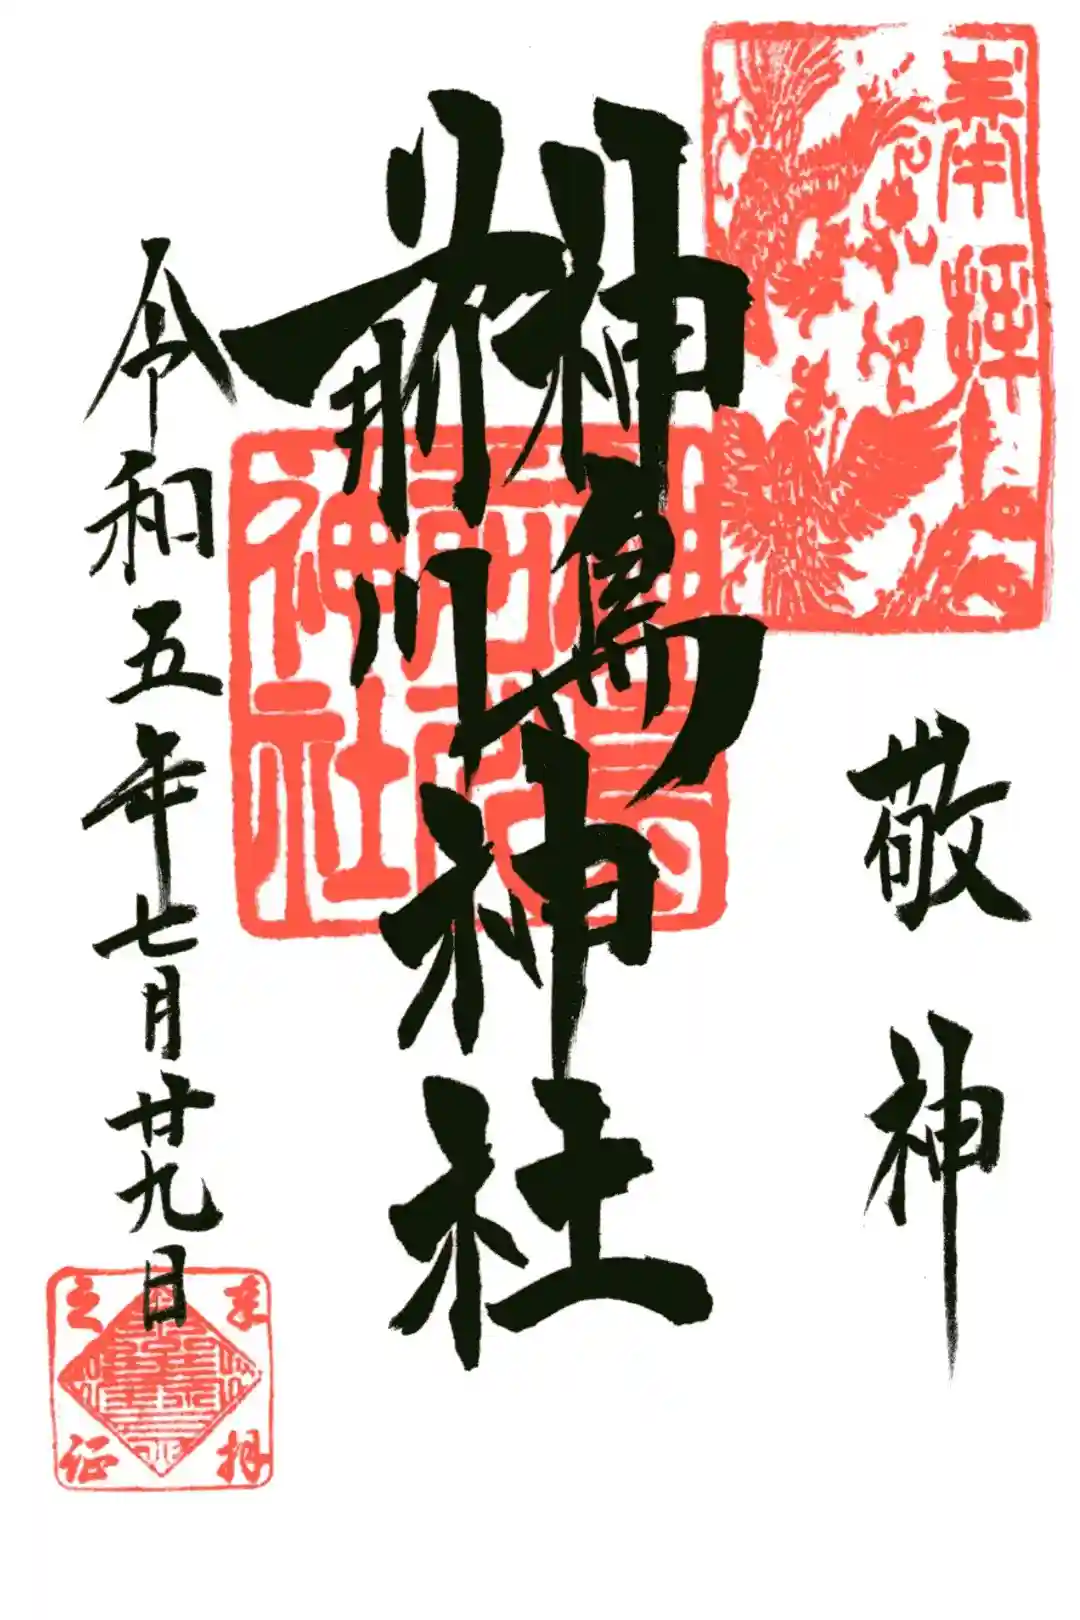 奉拝
敬神
神鳥
前川
神社
神鳥前川神社
令和五年七月廿九日
来拝之証